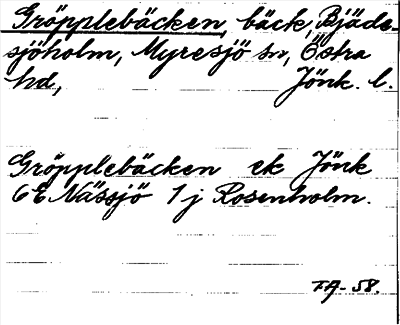 Gröpplebäcken, bäck, Bjäds-
sjöholm, Myresjö sn, Östra
hd, Jönk. l.
Gröpplebäcken ek Jönk
6E Nässjö 1j Rosenholm.
FA-58.